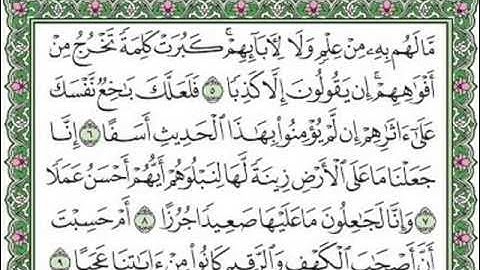 مَّا لَهُم بِهِۦ مِنْ عِلْمٍ وَلَا لِأَبَآئِهِمْۚ كَبُرَتْ كَلِمَةً تَخْرُجُ مِنْ
أَفْوَٰهِهِمْۚ إِن يَقُولُونَ إِلَّا كَذِبًا ٥ فَلَعَلَّكَ بَٰخِعٌ نَّفْسَكَ
عَلَىٰٓ ءَاثَٰرِهِمْ إِن لَّمْ يُؤْمِنُوا۟ بِهَٰذَا ٱلْحَدِيثِ أَسَفًا ٦ إِنَّا
جَعَلْنَا مَا عَلَى ٱلْأَرْضِ زِينَةً لَّهَا لِنَبْلُوَهُمْ أَيُّهُمْ أَحْسَنُ عَمَلًا
٧ وَإِنَّا لَجَٰعِلُونَ مَا عَلَيْهَا صَعِيدًا جُرُزًا ٨ أَمْ حَسِبْتَ
أَنَّ أَصْحَٰبَ ٱلْكَهْفِ وَٱلرَّقِيمِ كَانُوا۟ مِنْ ءَايَٰتِنَا عَجَبًا ٩